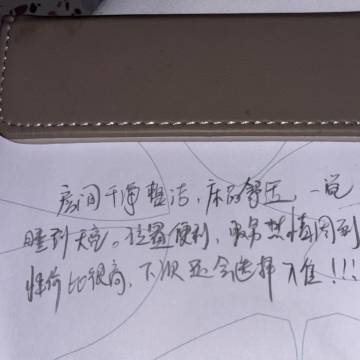 房间干净整洁,床的舒适,一觉
睡到天亮。位置便利,服务热情周到
性价比很高,下次还会选择入住!!!